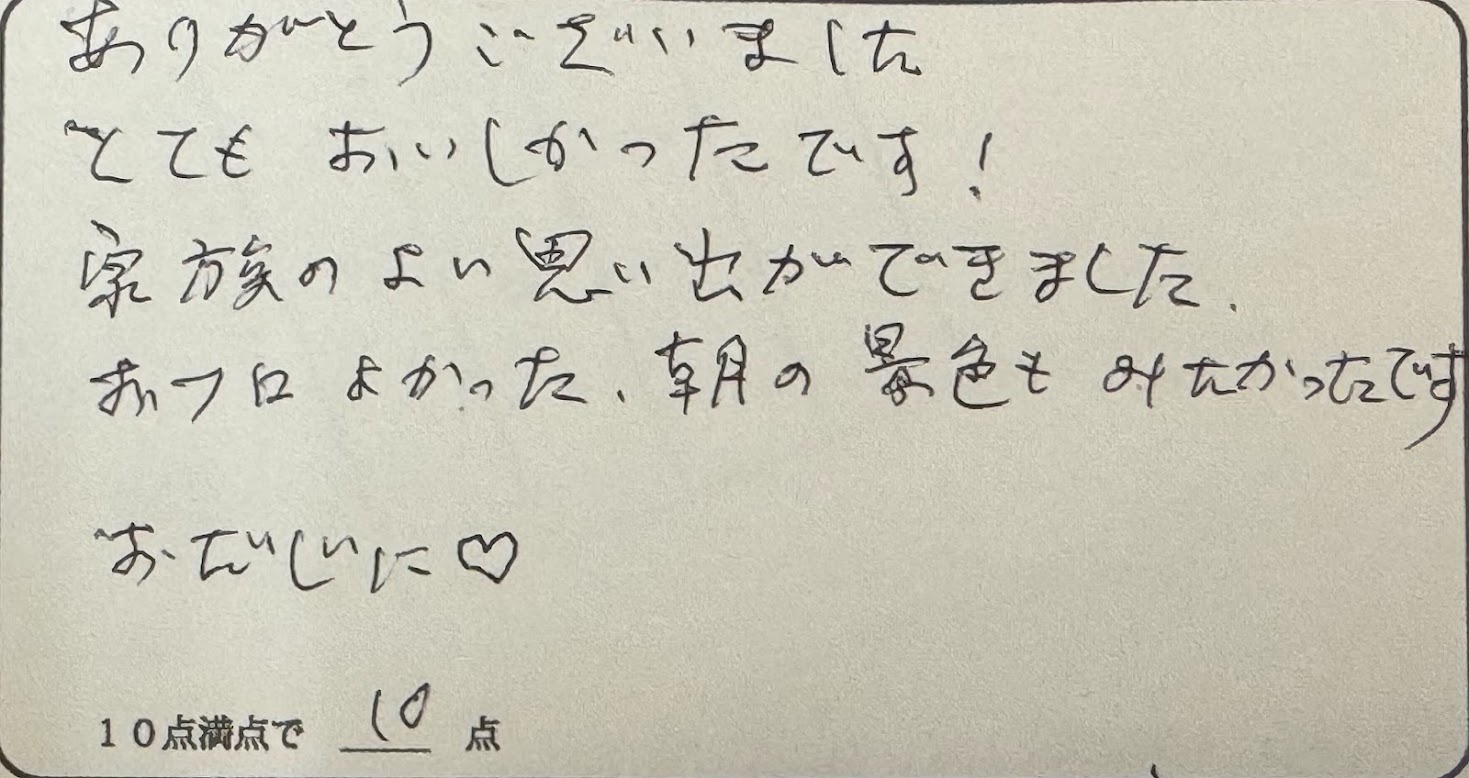 ありがとうございました
とても おいしかったです!
家族の よい 思い出ができました.
おフロ よかった、朝の 景色も みたかったです
おだいじに♡
10点満点で 10 点